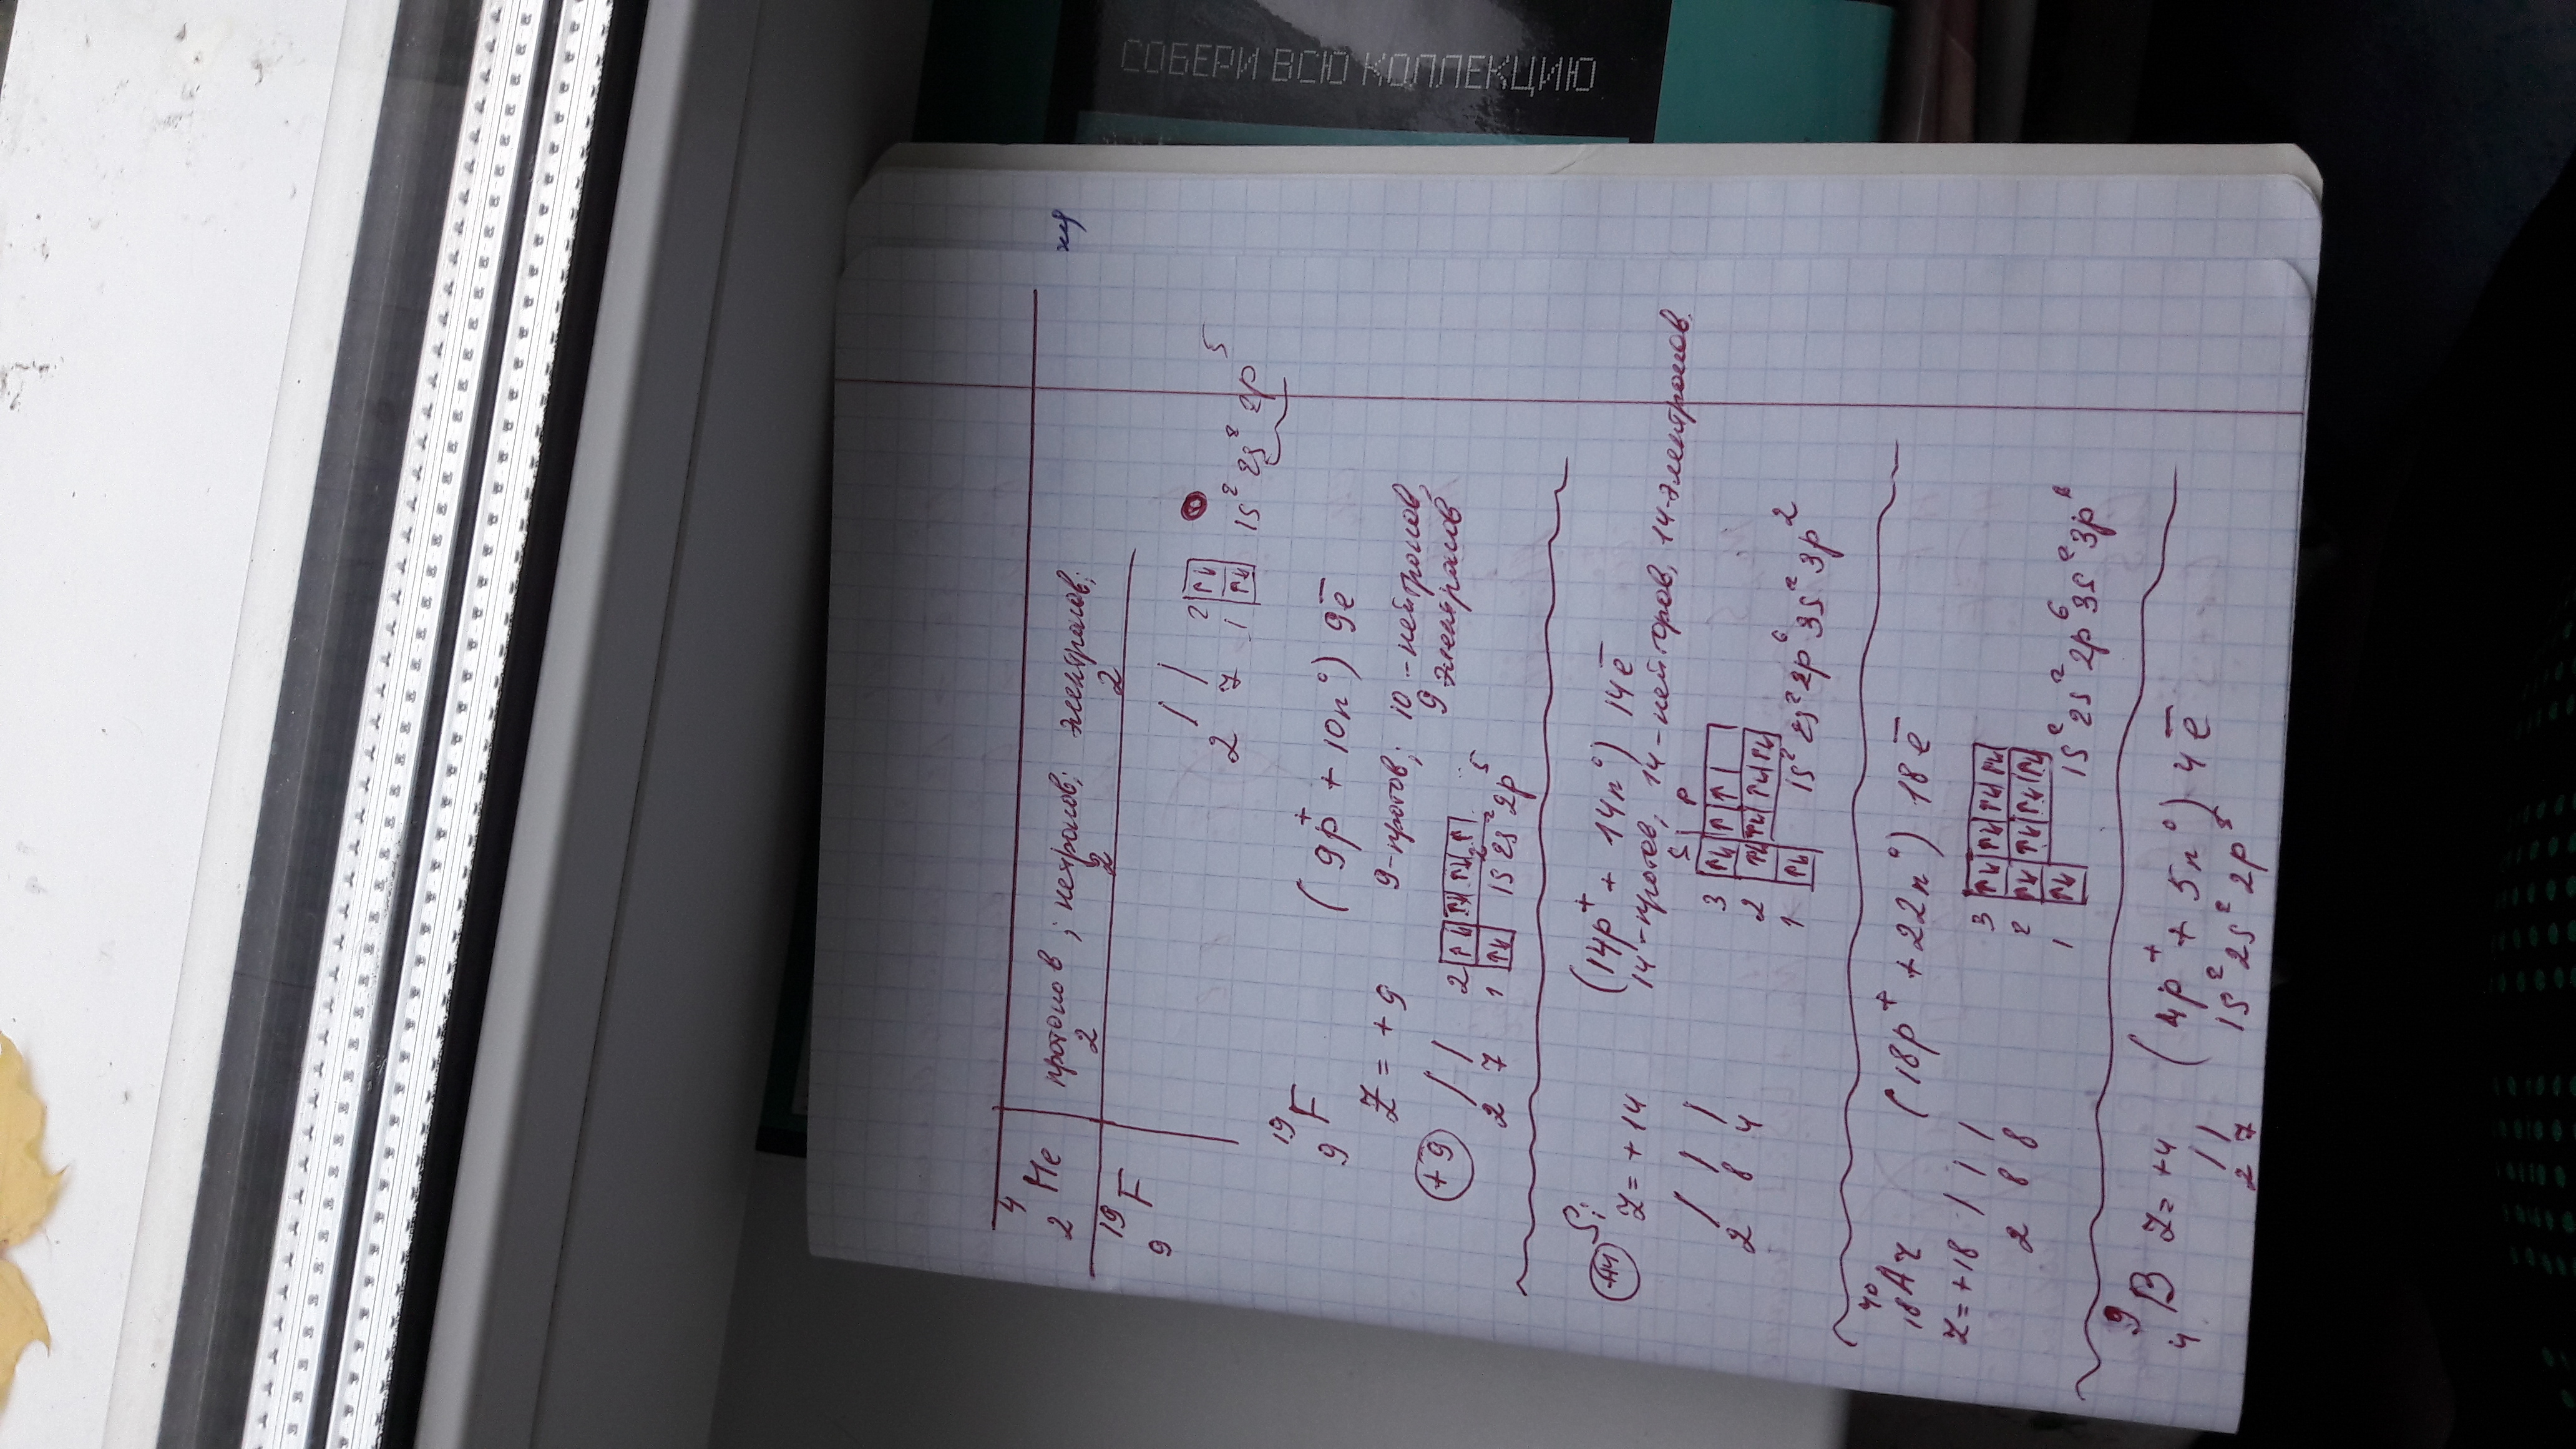 СОБЕРИ ВСЮ КОЛЛЕКЦИЮ
4
2 He протонов; нейтронов; электронов;
2 2 2
19
9 F
2 7
2
1 1s² 2s² 2p⁵
19
9 F (9p⁺ + 10n⁰) 9e⁻
Z = +9 9-протов; 10-нейтронов
9 электронов
+9 2 7
2
1 1s² 2s² 2p⁵
+14 Si (14p⁺ + 14n⁰) 14e⁻
Z = +14 14-протов, 14-нейторов, 14-электронов.
S P
2 8 4
3
2
1 1s² 2s² 2p⁶ 3s² 3p²
40
18 Ar (18p⁺ + 22n⁰) 18e⁻
Z = +18
2 8 8
3
2
1 1s² 2s² 2p⁶ 3s²
9
4 B Z = +4 (4p⁺ + 5n⁰) 4e⁻
2 7 1s² 2s² 2p⁵